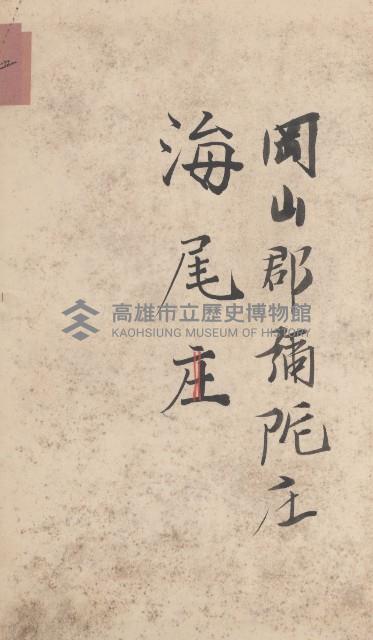 岡山郡彌陀庄
海尾庄
高雄市立歷史博物館
KAOHSIUNG MUSEUM OF HISTORY